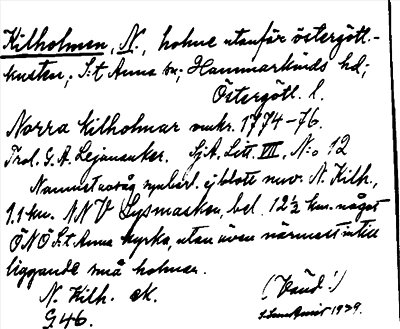 Kilholmen, N., holme utanför östergötl.-
kusten; S:t Anna sn; Hammarkinds hd;
Östergötl. l.
Norra Kilholmar omkr. 1774–76.
Prof. G. A. Lejonancker. SjA. Litt. III, N:o 12
Namnet avsåg synbarl. ej blott nuv. N. Kilh.,
1.1 km. NNV Lysmasken, bel. 12½ km. något
ÖNÖ S:t Anna kyrka, utan även närmast intill
liggande små holmar.
N. Kilh. ek.
G46.
1939.